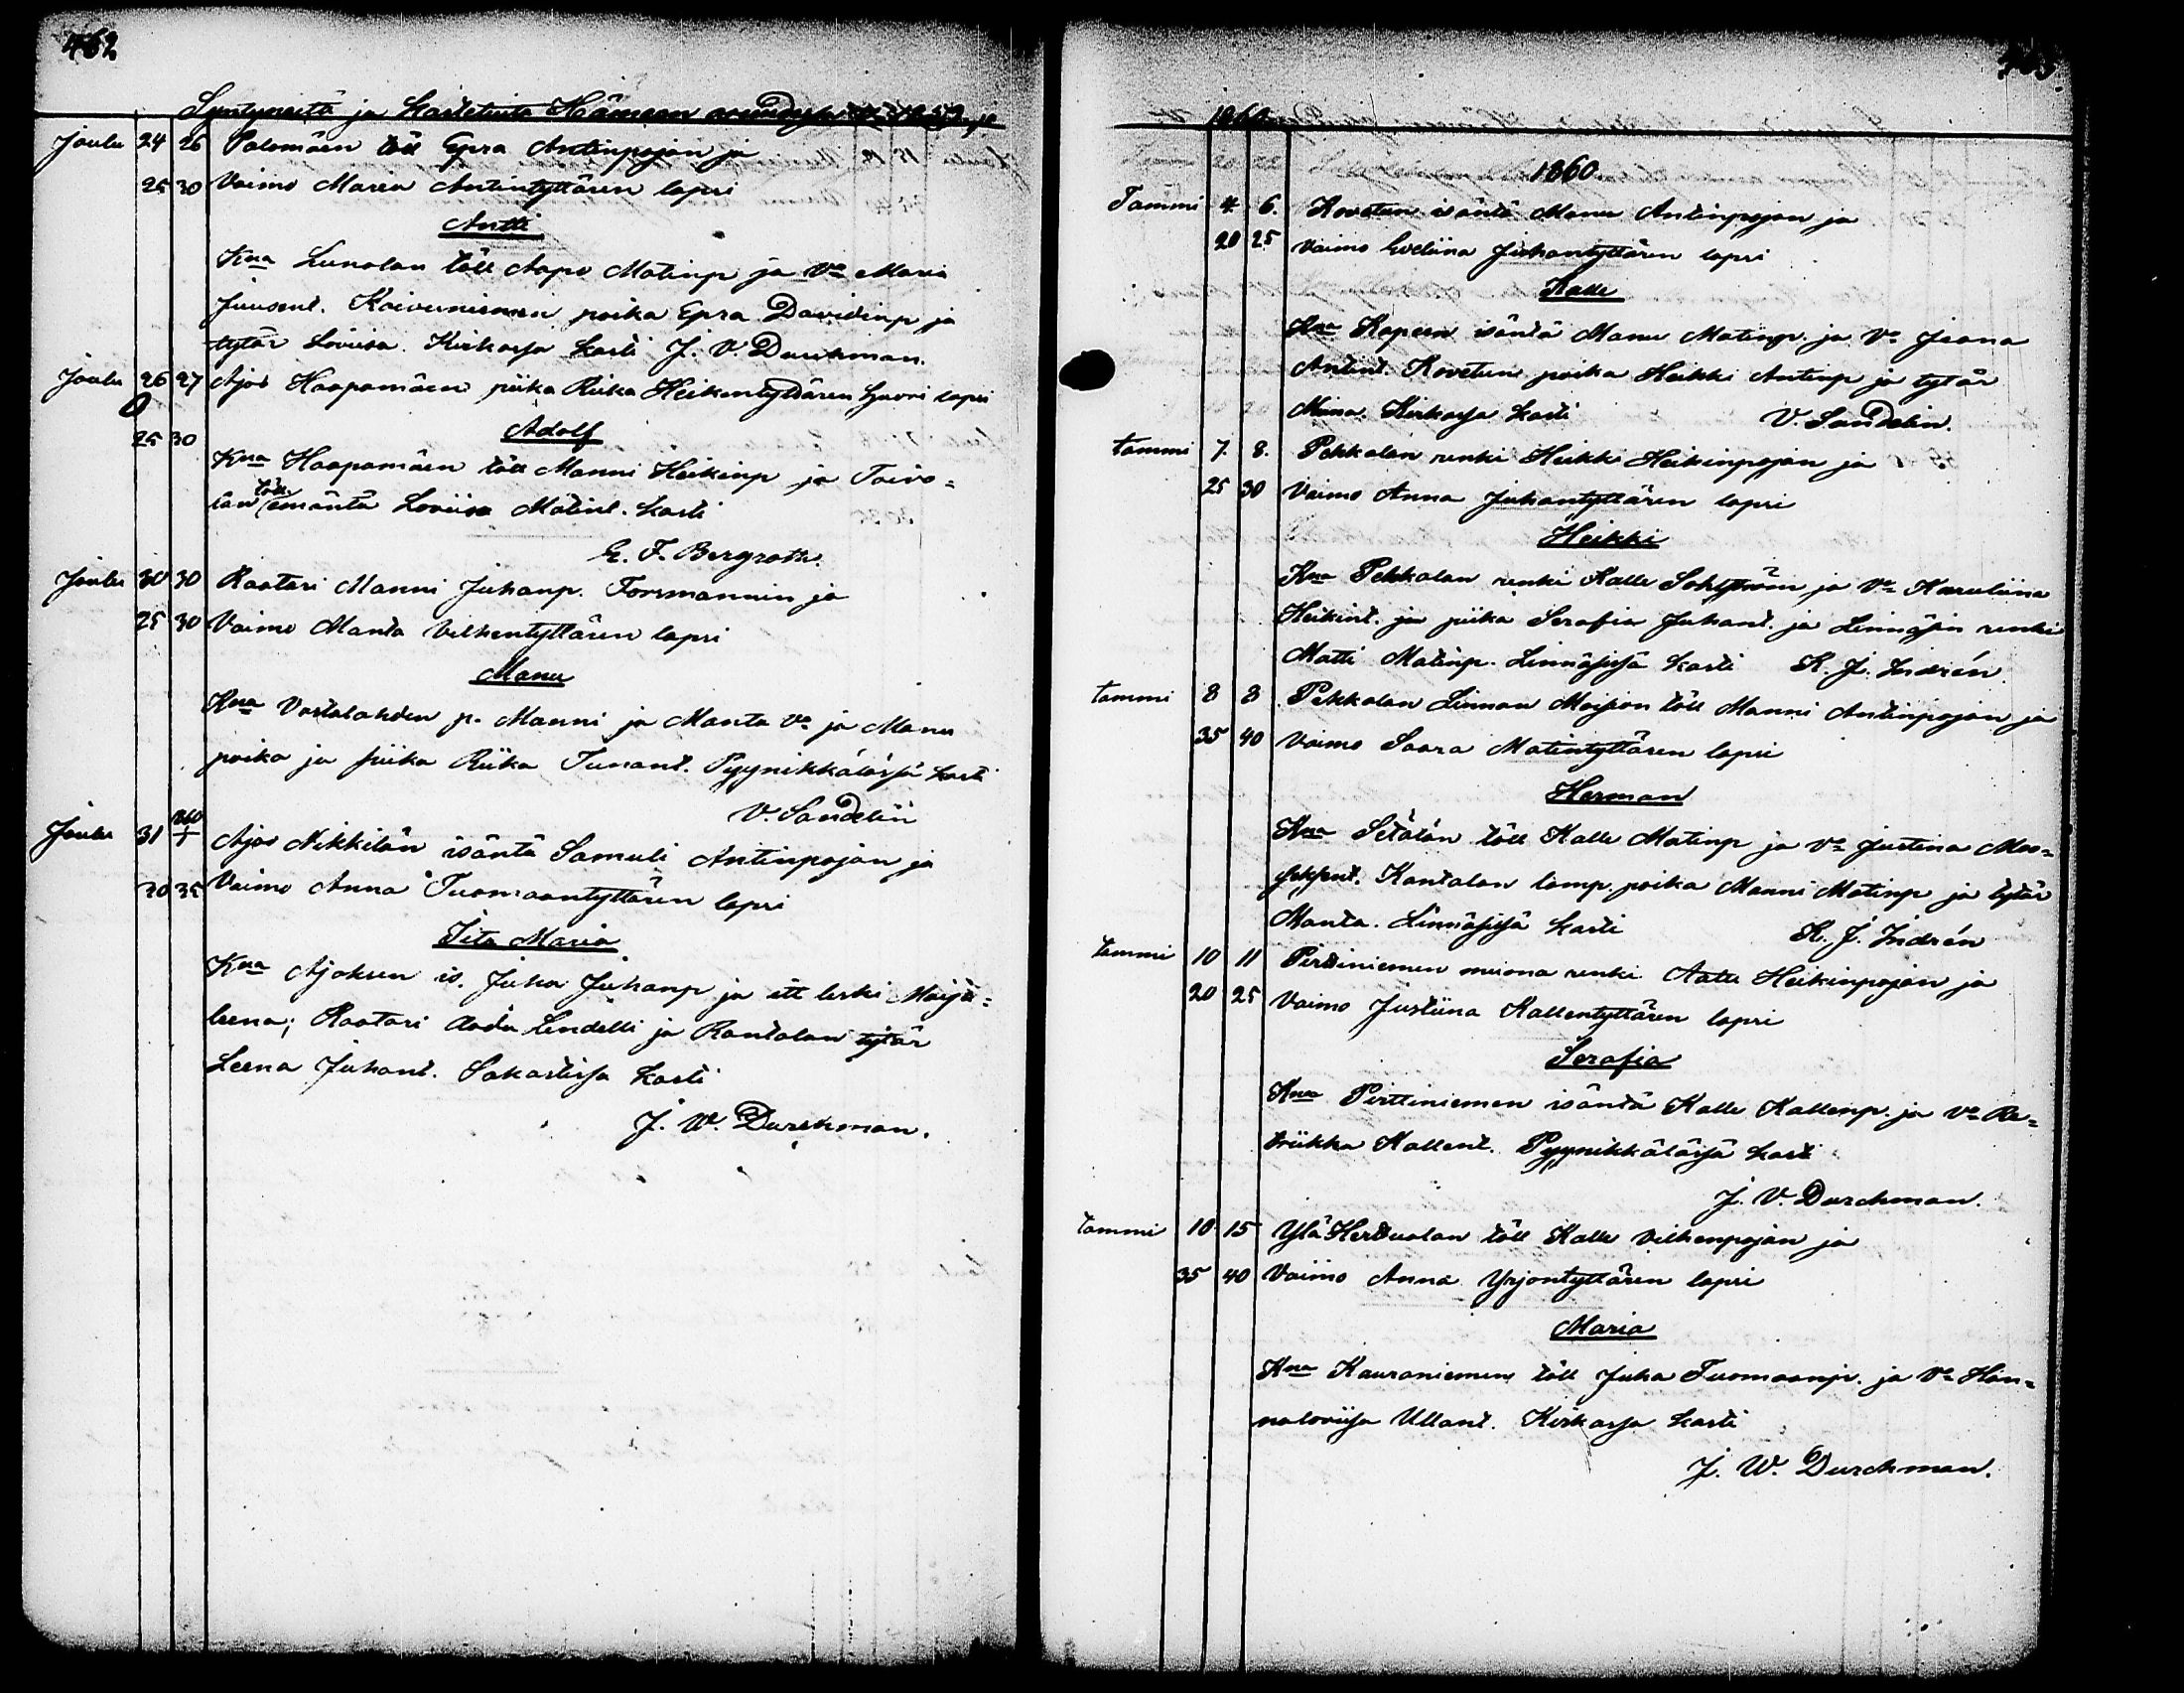 462
Syntyneitä ja Kastetuita Hämeen 1859 ja
Joulu 24 26 Palomäen töll Epra Antinpojan ja
25 30 Vaimo Maria Antintyttären lapsi
Antti
Kna Lunolan töll Aapo Matinp ja Vo Maria
Juusent. Koivuniemen poika Epra Davidinp ja
tytär Loviisa. Kirkossa kasti J. V. Durchman.
Joulu 26 27 Ajos Haapamäen piika Riika Heikentyttären lapsi
25 30 Adolf
Kna Haapamäen töll Manni Heikinp ja Toivo=
lan töll emäntä Loviisa Matint. kasti
E. F. Bergroth.
Joulu 30 30 Raatari Manni Juhanp. Forsmannin ja
25 30 Vaimo Manta Vilhentyttären lapsi
Manu
Kna Vastalahden p. Manni ja Manta Vo ja Manu
poika ja piika Riika Pyynikkälässä kasti
V. Sandelin
Joulu 31 Ajos Nikkilän isäntä Samuli Antinpojan ja
30 35 Vaimo Anna Tuomaantyttären lapsi
Iita Maria
Kna Ajoksen is. Juha Juhanp ja itt leski Maija=
leena; Raatari Aadu Lindelli ja Rantalan tytär
Leena Juhant. Sakastissa kasti
J. W. Durchman.
1860
1860.
Tammi 4 6. Rovetun isäntä Manu Antinpojan ja
20 25 Vaimo Eveliina Juhantyttären lapsi
Kalle
Kna Kapeen isäntä Manu Matinp. ja Vo Joana
Antint. Rovetun poika Heikki Antinp ja tytär
Miina. Kirkossa kasti V. Sandelin.
tammi 7. 8. Pekkalan renki Heikki Heikinpojan ja
25 30 Vaimo Anna Juhantyttären lapsi
Heikki
Kna Pekkalan renki Kalle Sohlström ja Vo Karuliina
Heikint. ja piika Serafia Juhant. ja Linnäisin renki
Matti Matinp. Linnäsissä kasti K. J. Indrén.
tammi 8 8 Pekkalan Linnan Moision töll Manni Antinpojan ja
35 40 Vaimo Saara Matintyttären lapsi
Herman
Kna Setälän töll Kalle Matinp ja Vo Justina Moo=
Kantalan lamp. poika Manni Matinp ja tytär
Manta. Linnäsissä kasti K. J. Indrén
tammi 10 11 Pirttiniemen muona renki Aatu Heikinpojan ja
20 25 Vaimo Justiina Kallentyttären lapsi
Serafia
Kna Pirttiniemen isäntä Kalle Kallenp. ja Vo Re=
triikka Kallent. Pyynikkälässä kast
J. V. Durchman.
tammi 10 15 Ylä Herttualan töll Kalle Vilhenpojan ja
35 40 Vaimo Anna Yrjontyttären lapsi
Maria
Kna Kauraniemen töll Juha Tuomaanp. ja Vo Han=
naloviisa Ullant. Kirkossa kasti
J. W. Durchman.